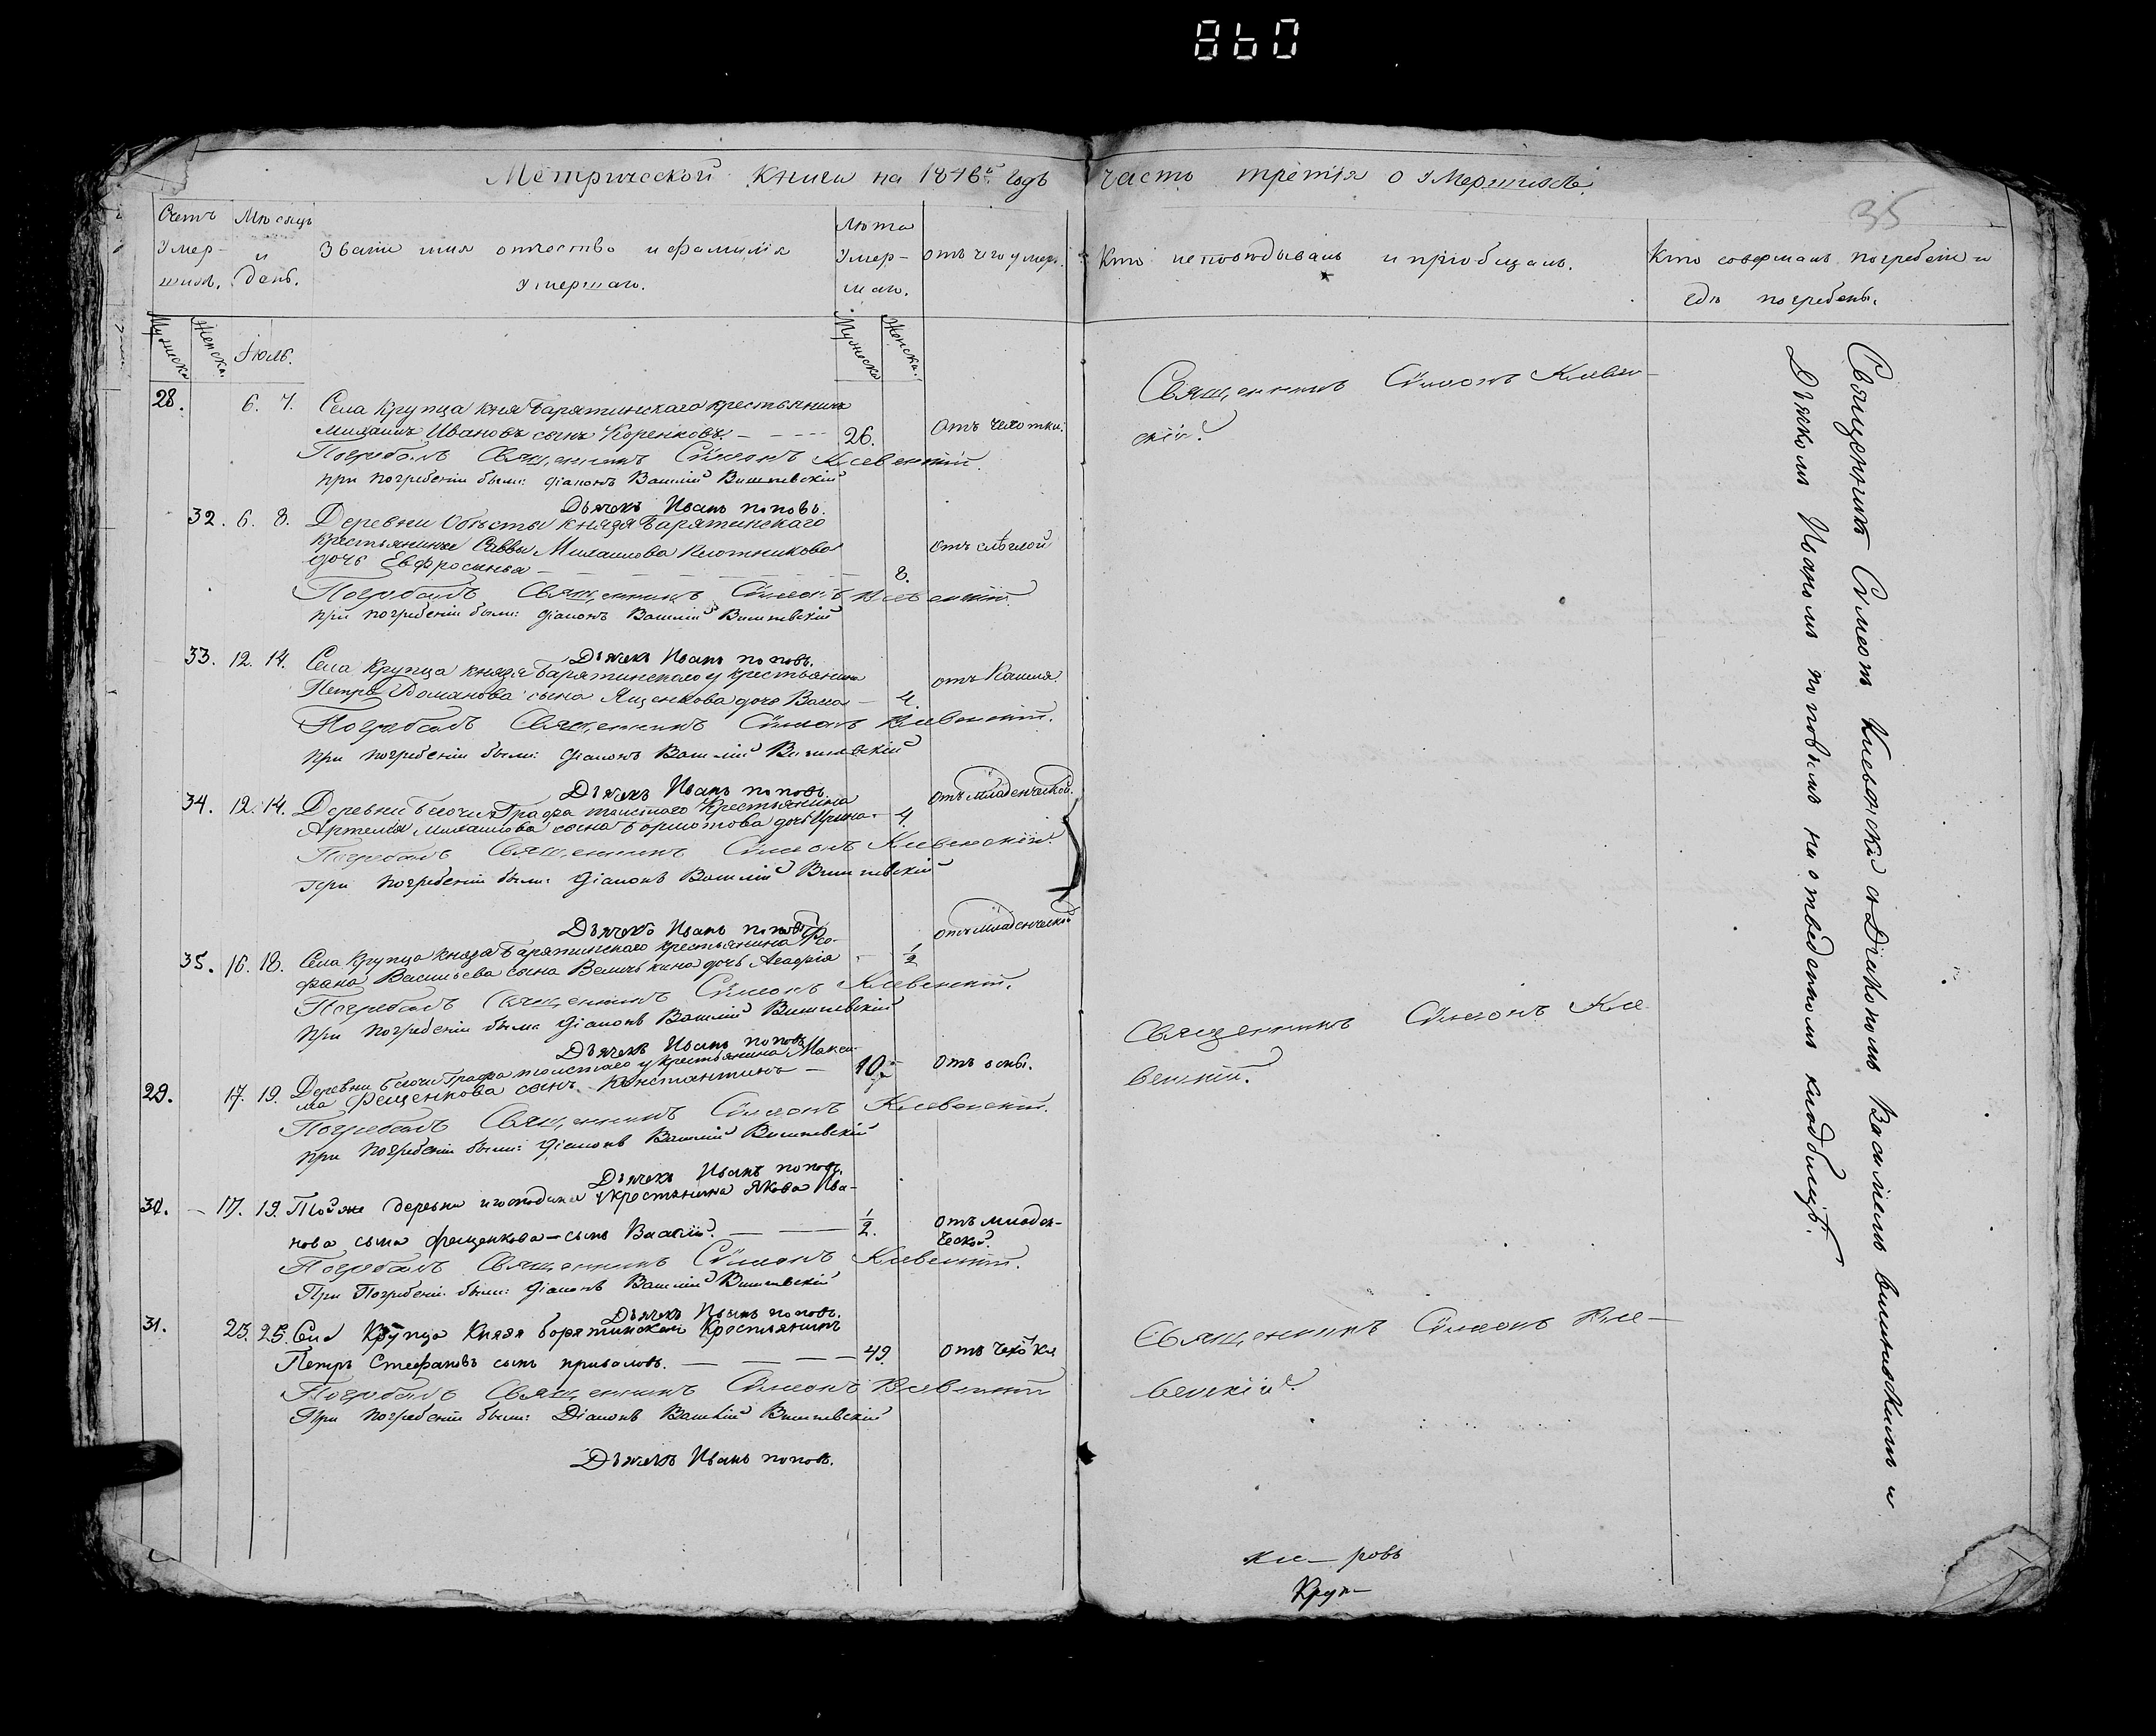 860
Метрической книги на 1846й годъ часть третія о умершихъ.
35
Счетъ умер-шихъ.
Мѣсяцъ и день.
Званіе имя отчество и фамилія умершаго.
Лѣта умер-шаго.
отъ чего умеръ.
Кто исповѣдывалъ и пріобщалъ.
Кто совершалъ погребеніе и гдѣ погребены.
Мужеска
Женска.
Іюль.
Мужеска
Женска.
28. 6. 7. Села Крупца князя Барятинскаго крестьянинъ
Михаилъ Ивановъ сынъ Коренковъ. 26. Отъ чехотки.
Погребалъ Священникъ Сѵмеонъ Клевенскій.
при погребеніи были: Діаконъ Василій Вишневскій
Дьячекъ Иванъ поповъ.
Священникъ Сѵмеонъ Клевен-
скій.
32. 6. 8. Деревни Обѣсты князя Барятинскаго
крестьянина Саввы Михаилова Плотникова
дочь Евфросинья 8.
Погребалъ Священникъ Сѵмеонъ Клевенскій.
при погребеніи были: Діаконъ Василій Вишневскій
Дьячекъ Иванъ поповъ.
33. 12. 14. Села Крупца князя Барятинскаго у крестьянина
Петра Романова сына Ященкова дочь 4. отъ Кашля.
Погребалъ Священникъ Сѵмеонъ Клевенскій.
при погребеніи были: Діаконъ Василій Вишневскій
Дьячекъ Иванъ поповъ.
34. 12. 14. Деревни Графа толстаго крестьянина
Артемія Михаилова сына дочь Ирина 4. отъ младенческой.
Погребалъ Священникъ Сѵмеонъ Клевенскій.
При погребеніи были: Діаконъ Василій Вишневскій
Дьячекъ Иванъ поповъ.
35. 16. 18. Села Крупца князя Барятинскаго крестьянина Ѳео-
фана Васильева сына дочь Агафія 1/2 отъ младенческой
Погребалъ Священникъ Сѵмеонъ Клевенскій.
При погребеніи были Діаконъ Василій Вишневскій
Дьячекъ Иванъ поповъ
29. 17. 19. Деревни Графа толстаго у крестьянина Макси-
ма Фещенкова сынъ Константинъ 10. Отъ оспы.
Погребалъ Священникъ Сѵмеонъ Клевенскій.
при погребеніи были: Діаконъ Василій Вишневскій
Дьячекъ Иванъ поповъ.
Священникъ Сѵмеонъ Кле-
венскій.
30. 17. 19. Той же деревни и господина у крестьянина Якова Ива-
нова сына Фещенкова сынъ Василій 1/2. отъ младен-
ческой.
Погребалъ Священникъ Сѵмеонъ Клевенскій.
При Погребеніи были: Діаконъ Василій Вишневскій
Дьячекъ Иванъ поповъ.
31. 23. 25. Села Крупца Князя борятинскаго Крестьянинъ
Петръ Стефановъ сынъ приваловъ. 49. Отъ чехотки
Погребалъ Священникъ Сѵмеонъ Клевенскій
При погребеніи были: Діаконъ Василій Вишневскій
Дьячекъ Иванъ поповъ.
Священникъ Сѵмеонъ Кле-
венскій.
Священникъ Сѵмеонъ Клевенскій съ Діакономъ Василіемъ вишневскимъ и
Дьячкомъ Иваномъ поповымъ на отведенномъ кладбищѣ.
ровъ
Круп-